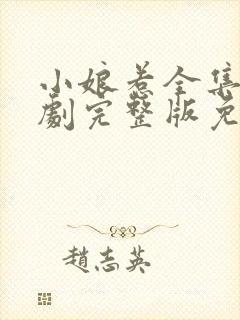 小娘惹全集
劇完整版免
趙志英